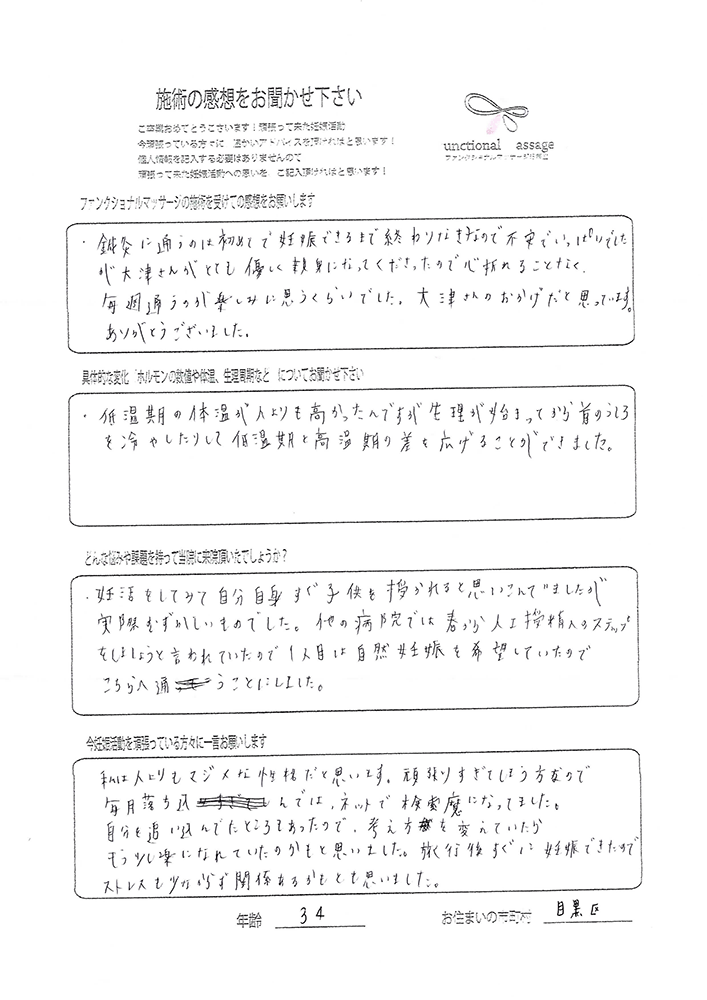 施術の感想をお聞かせ下さい
ご卒業おめでとうございます！頑張って来た妊娠活動
今頑張っている方々に 温かいアドバイスを頂ければと思います！
個人情報を記入する必要はありませんので
頑張って来た妊娠活動への思いを ご記入頂ければと思います！
unctional assage
ファンクショナルマッサージの施術を受けての感想をお願いします
・鍼灸に通うのは初めてで妊娠できるまで終わりなきなので不安でいっぱいでした
が大津さんがとても優しく親身になってくださったので心折れることなく、
毎週通うのが楽しみに思うくらいでした。大津さんのおかげだと思っています。
ありがとうございました。
具体的な変化 ホルモンの数値や体温、生理周期など についてお聞かせ下さい
・低温期の体温が人よりも高かったんですが生理が始まってから首のうしろ
を冷やしたりして低温期と高温期の差を広げることができました。
どんな悩みや課題を持って当院に来院頂いたでしょうか？
・妊活をしてみて自分自身すぐ子供を授かれると思いこんでいましたが
実際むずかしいものでした。他の病院では春から人工授精へのステップ
をしましょうと言われていたので1人目は自然妊娠を希望していたので
こちらへ通うことにしました。
今妊娠活動を頑張っている方々に一言お願いします
私は人よりもマジメな性格だと思います。頑張りすぎてしまう方なので
毎月落ち込んでは、ネットで検索魔になってました。
自分を追い込んでたところもあったので、考え方を変えていたら
もう少し楽になれていたのかもと思いました。旅行後すぐに妊娠できたので
ストレスも少なからず関係あるかもとも思いました。
年齢 34 お住まいの市町村 目黒区